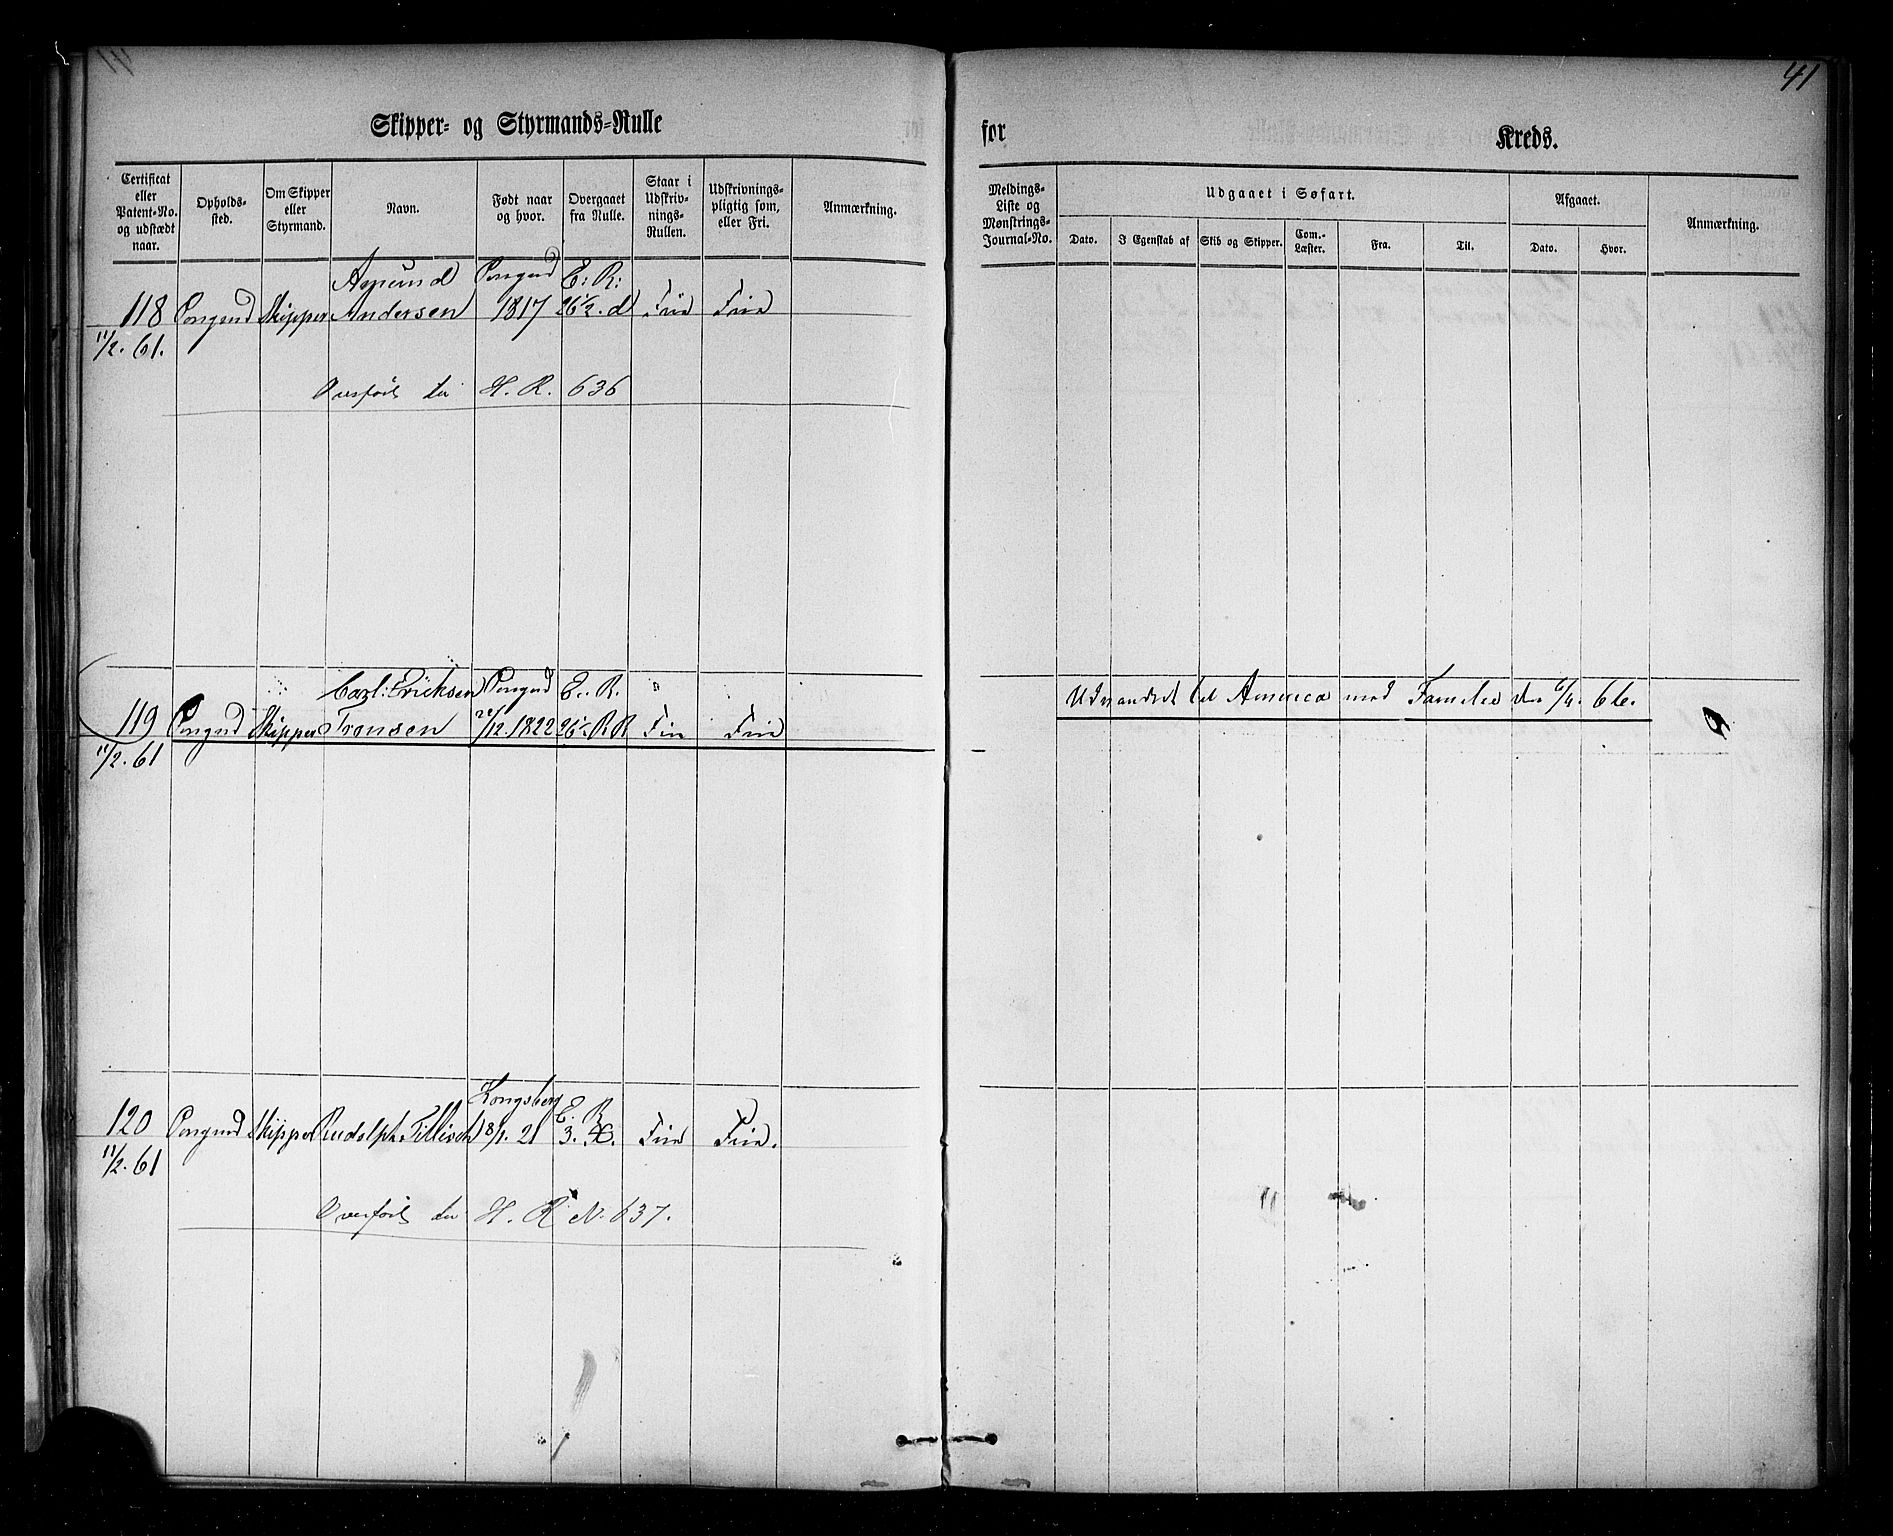 41
Skipper- og Styrmands-Rulle
for
Kreds.
Certificat eller Patent-No. og udstædt naar.
Opholdssted.
Om Skipper eller Styrmand.
Navn.
Født naar og hvor.
Overgaaet fra Rulle.
Staar i Udskrivnings-Rullen.
Udskrivningspligtig som, eller Fri.
Anmærkning.
Meldings-Liste og Mønstrings-Journal-No.
Udgaaet i Søfart.
Dato.
I Egenskab af
Skib og Skipper.
Com.-Læster.
Fra.
Til.
Afgaaet.
Dato.
Hvor.
Anmærkning.
Porsgrund E: R:
118 Skipper Andersen 1817 26 1/2 d Frie Frie
11/2. 61.
Overført til H. R. 636
Carl Ericksen E. R.
119 Skipper Fronsen /12. 1822 Frie Frie
11/2. 61
Udvandret til America med Familie den 6/4. 66.
Kongsberg E. R.
120 Skipper Rudolph Tillisch 18/1. 21 3. Frie Frie.
11/2. 61
Overført til H. R. No. 637.